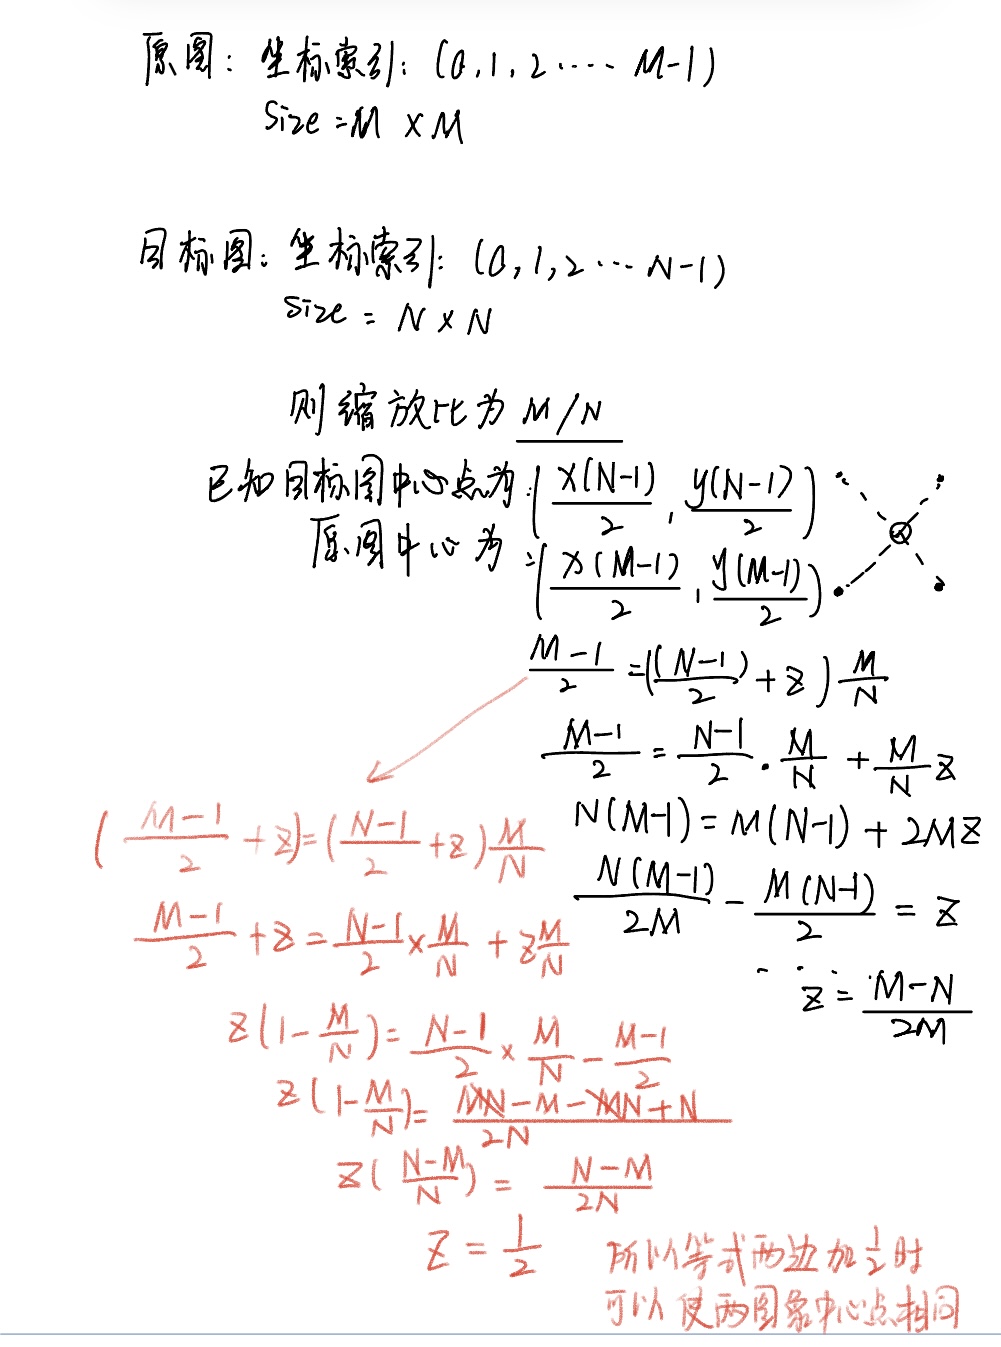 原图: 坐标索引: (0,1,2 ···· M-1)
Size = M × M
目标图: 坐标索引: (0,1,2 ··· N-1)
Size = N × N
则缩放比为 M/N
已知目标图中心点为: (x(N-1)/2 , y(N-1)/2)
原图中心为: (x(M-1)/2 , y(M-1)/2)
(M-1)/2 = ((N-1)/2 + z) M/N
(M-1)/2 = (N-1)/2 · M/N + M/N z
N(M-1) = M(N-1) + 2Mz
N(M-1)/2M - M(N-1)/2 = z
z = (M-N)/2M
((M-1)/2 + z) = ((N-1)/2 + z) M/N
(M-1)/2 + z = (N-1)/2 × M/N + z M/N
z(1 - M/N) = (N-1)/2 × M/N - (M-1)/2
z(1 - M/N) = (MN - M - MN + N)/2N
z((N-M)/N) = (N-M)/2N
z = 1/2
所以等式两边加1/2时
可以使两图象中心点相同